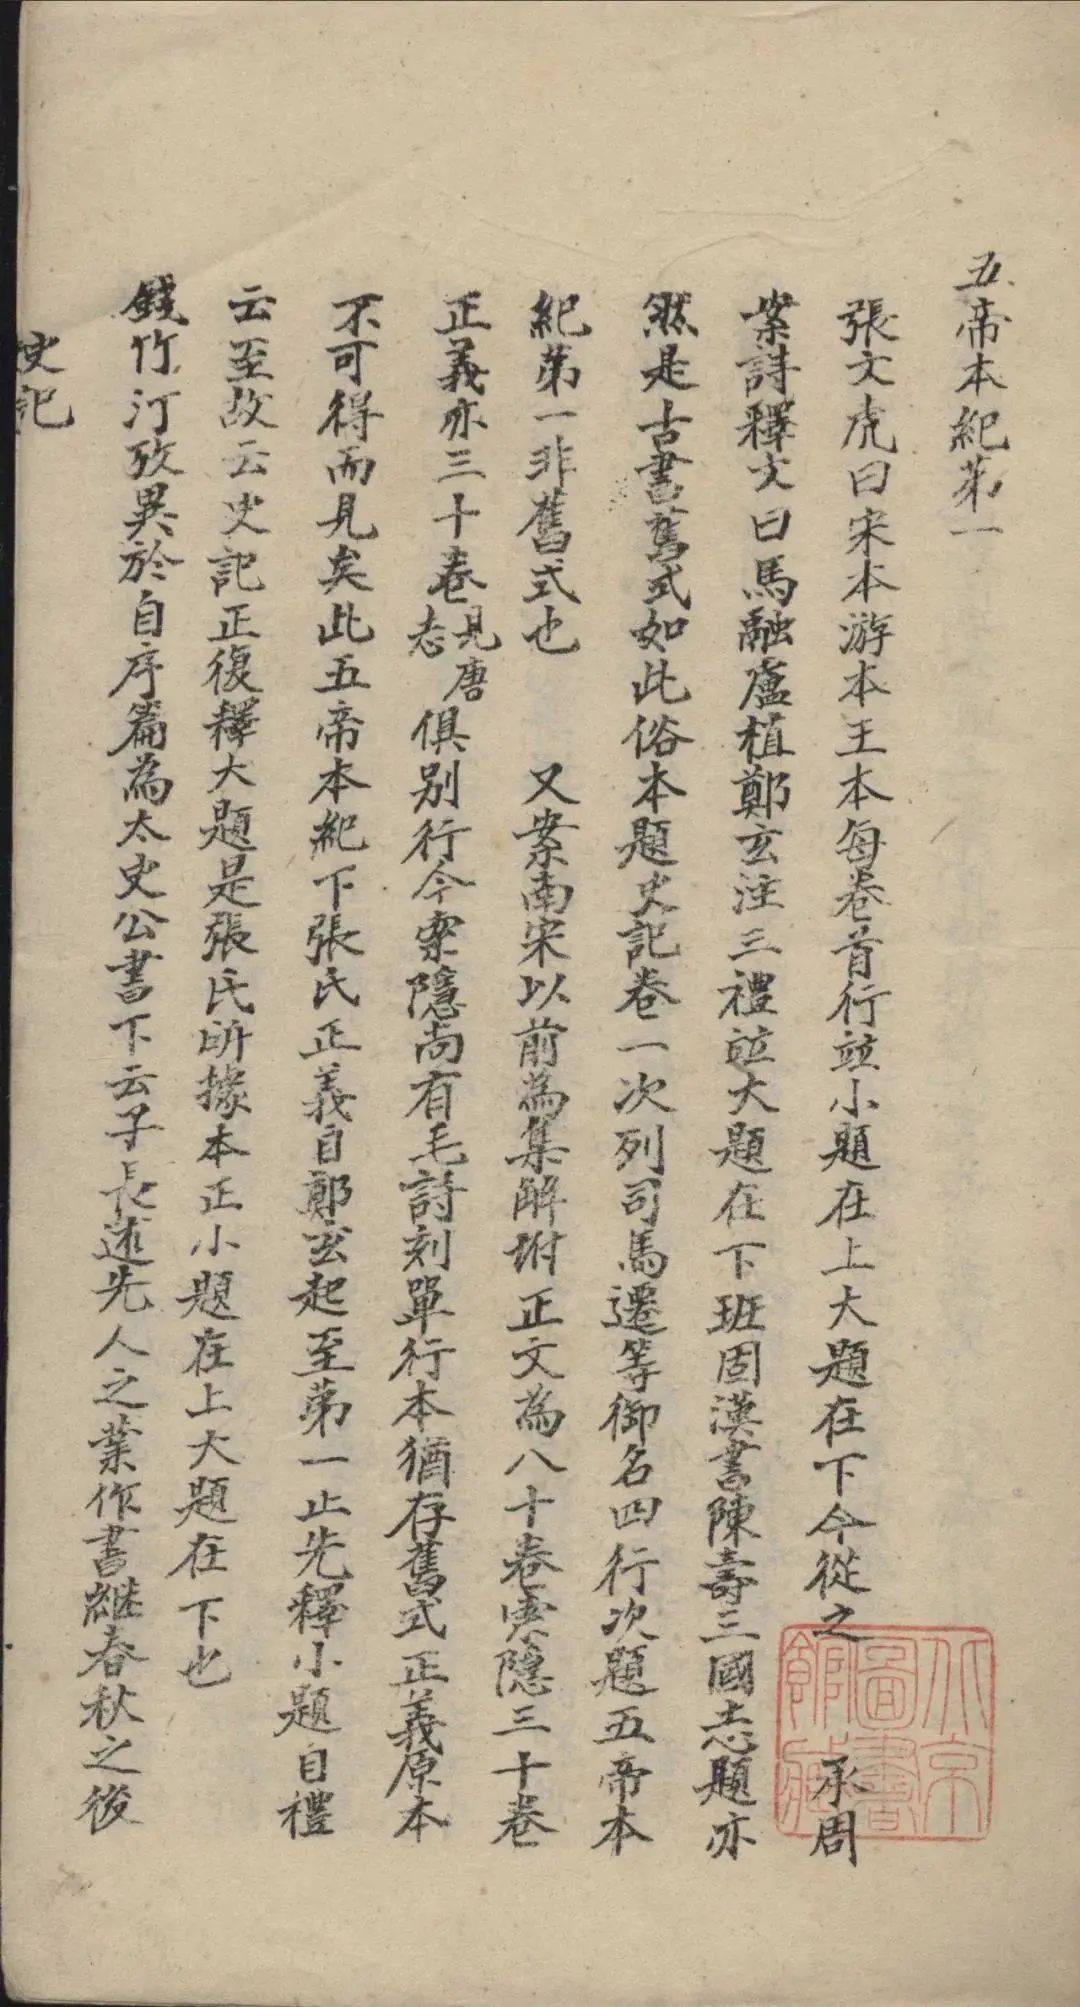 五帝本紀第一
張文虎曰宋本游本王本每卷首行竝小題在上大題在下今從之　承周
案詩釋文曰馬融盧植鄭玄注三禮竝大題在下班固漢書陳壽三國志題亦
然是古書舊式如此俗本題史記卷一次列司馬遷等御名四行次題五帝本
紀第一非舊式也　又案南宋以前為集解坿正文為八十卷索隱三十卷
正義亦三十卷見唐志俱別行今索隱尚有毛詩刻單行本猶存舊式正義原本
不可得而見矣此五帝本紀下張氏正義自鄭玄起至第一止先釋小題自禮
云至故云史記正復釋大題是張氏所據本正小題在上大題在下也
錢竹汀攷異於自序篇為太史公書下云子長述先人之業作書繼春秋之後
史記
北京圖書館藏